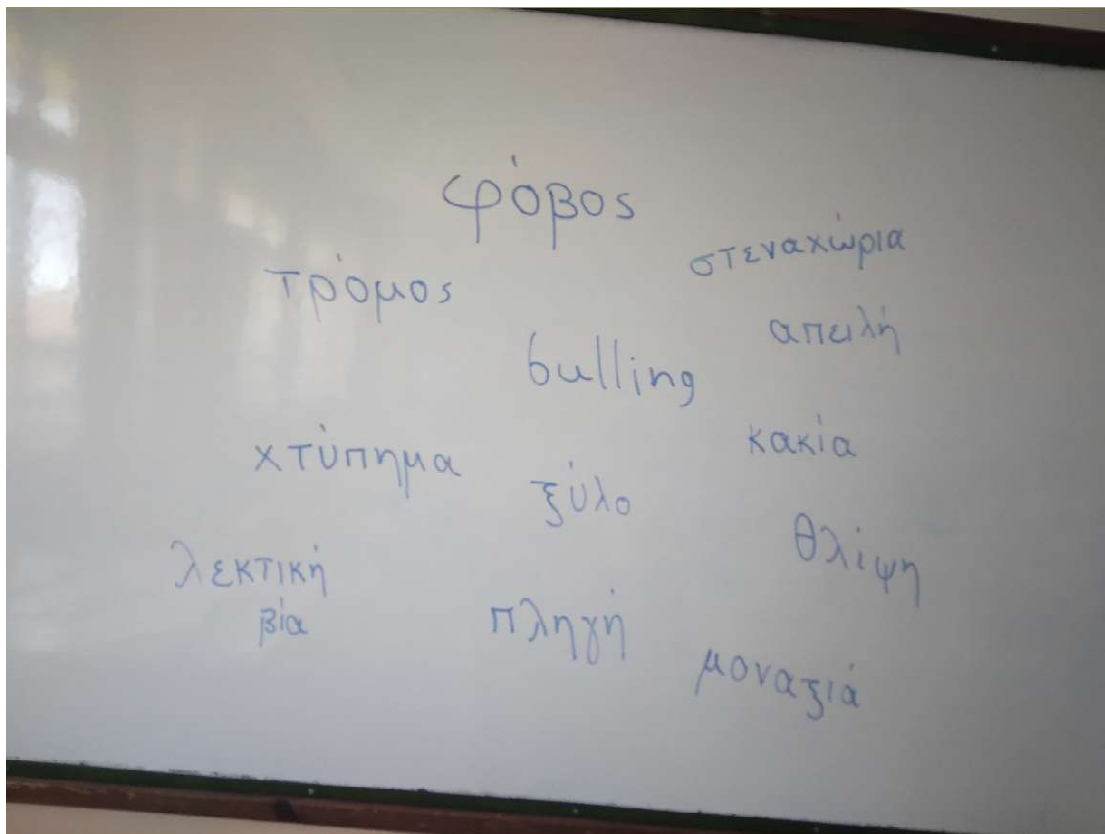 φόβος
στεναχώρια
τρόμος
απειλή
bulling
κακία
χτύπημα
ξύλο
θλίψη
λεκτική
βία
πληγή
μοναξιά